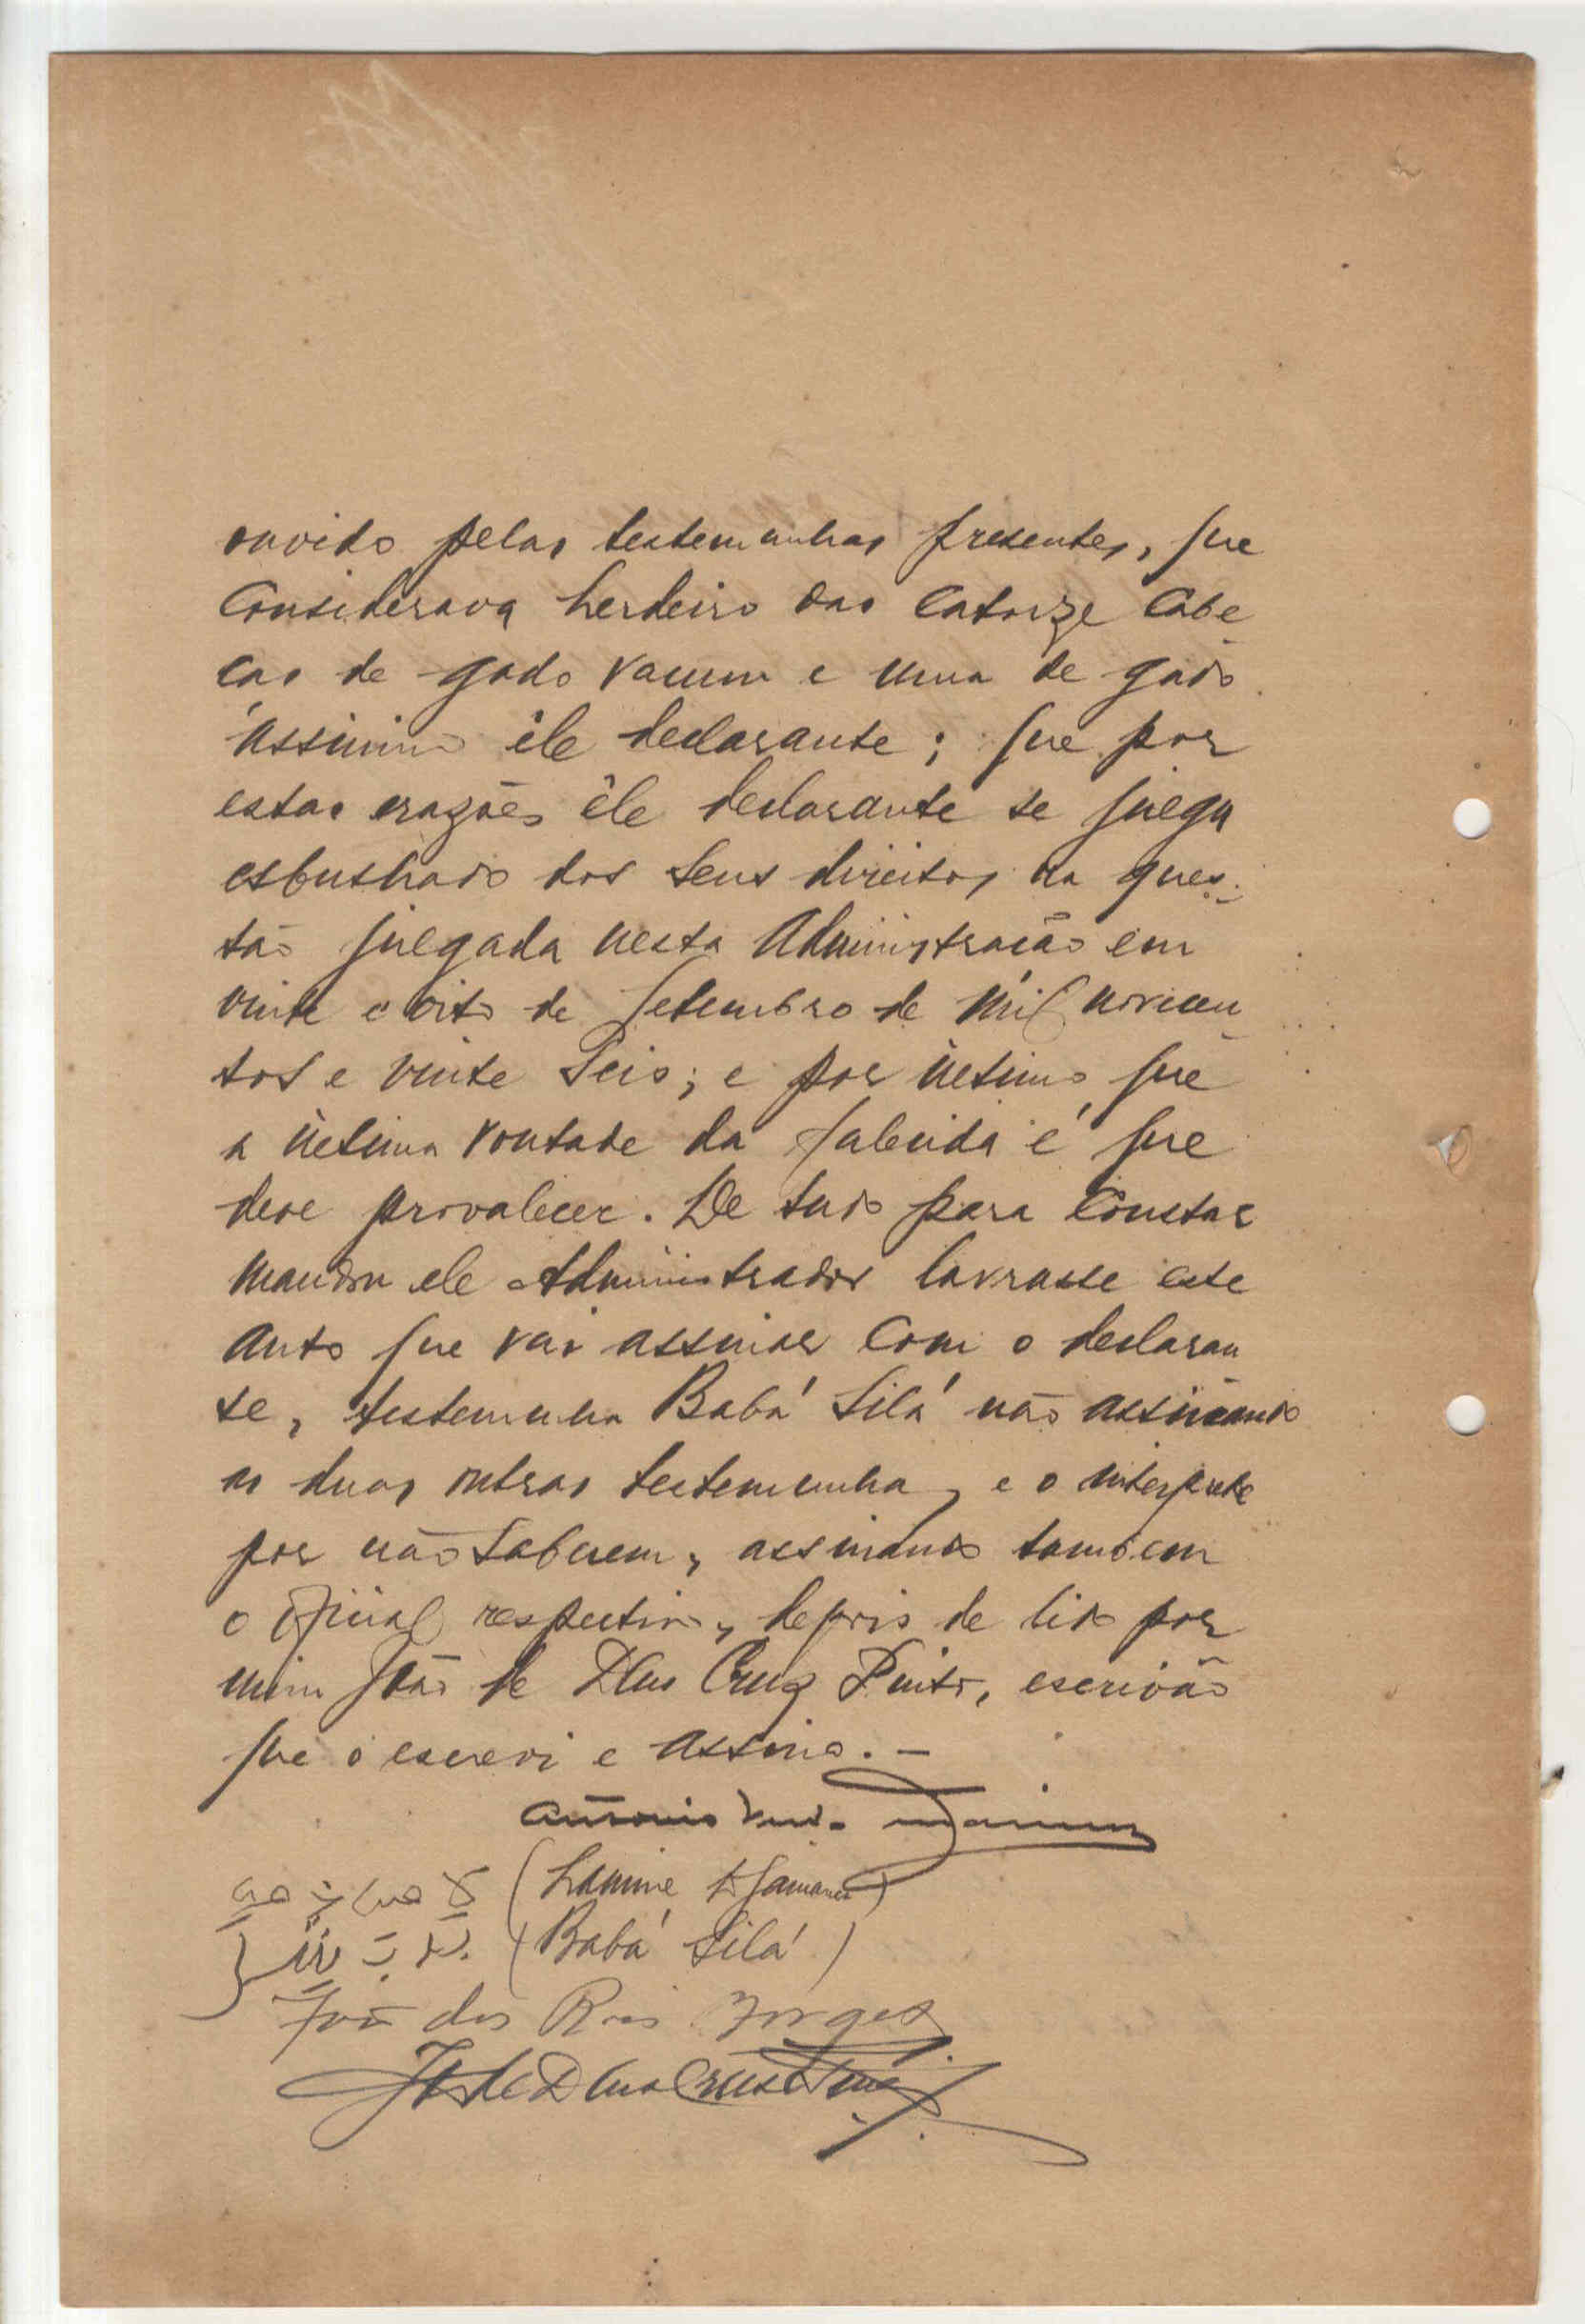 ouvido pelas testemunhas presentes, que
Considerava herdeiro das Catorze Cabe-
ças de gado vacum e uma de gado
assinino êle declarante; que por
estas razões êle declarante se julga
esbulhado dos seus direitos, na ques-
tão julgada nesta Administração em
vinte e oito de Setembro de mil novecen-
tos e vinte Seis; e por ùltimo que
a ùltima vontade da falecida é que
deve provalecer. De tudo para Constar
mandou ele Administrador lavrasse este
Auto que vai assinar Com o declaran
te, testemunha Babá Silá não assinando
as duas outras testemunha, e o interprete
por não saberem, assinando tambem
o oficial respectivo, depois de lido por
mim João de Deus Cruz Pinto, escrivão
que o escrevi e assino. —
Antonio
(Lamine Djamanca)
(Babá Silá)
João dos Reis Borges
João de Deus Cruz Pinto